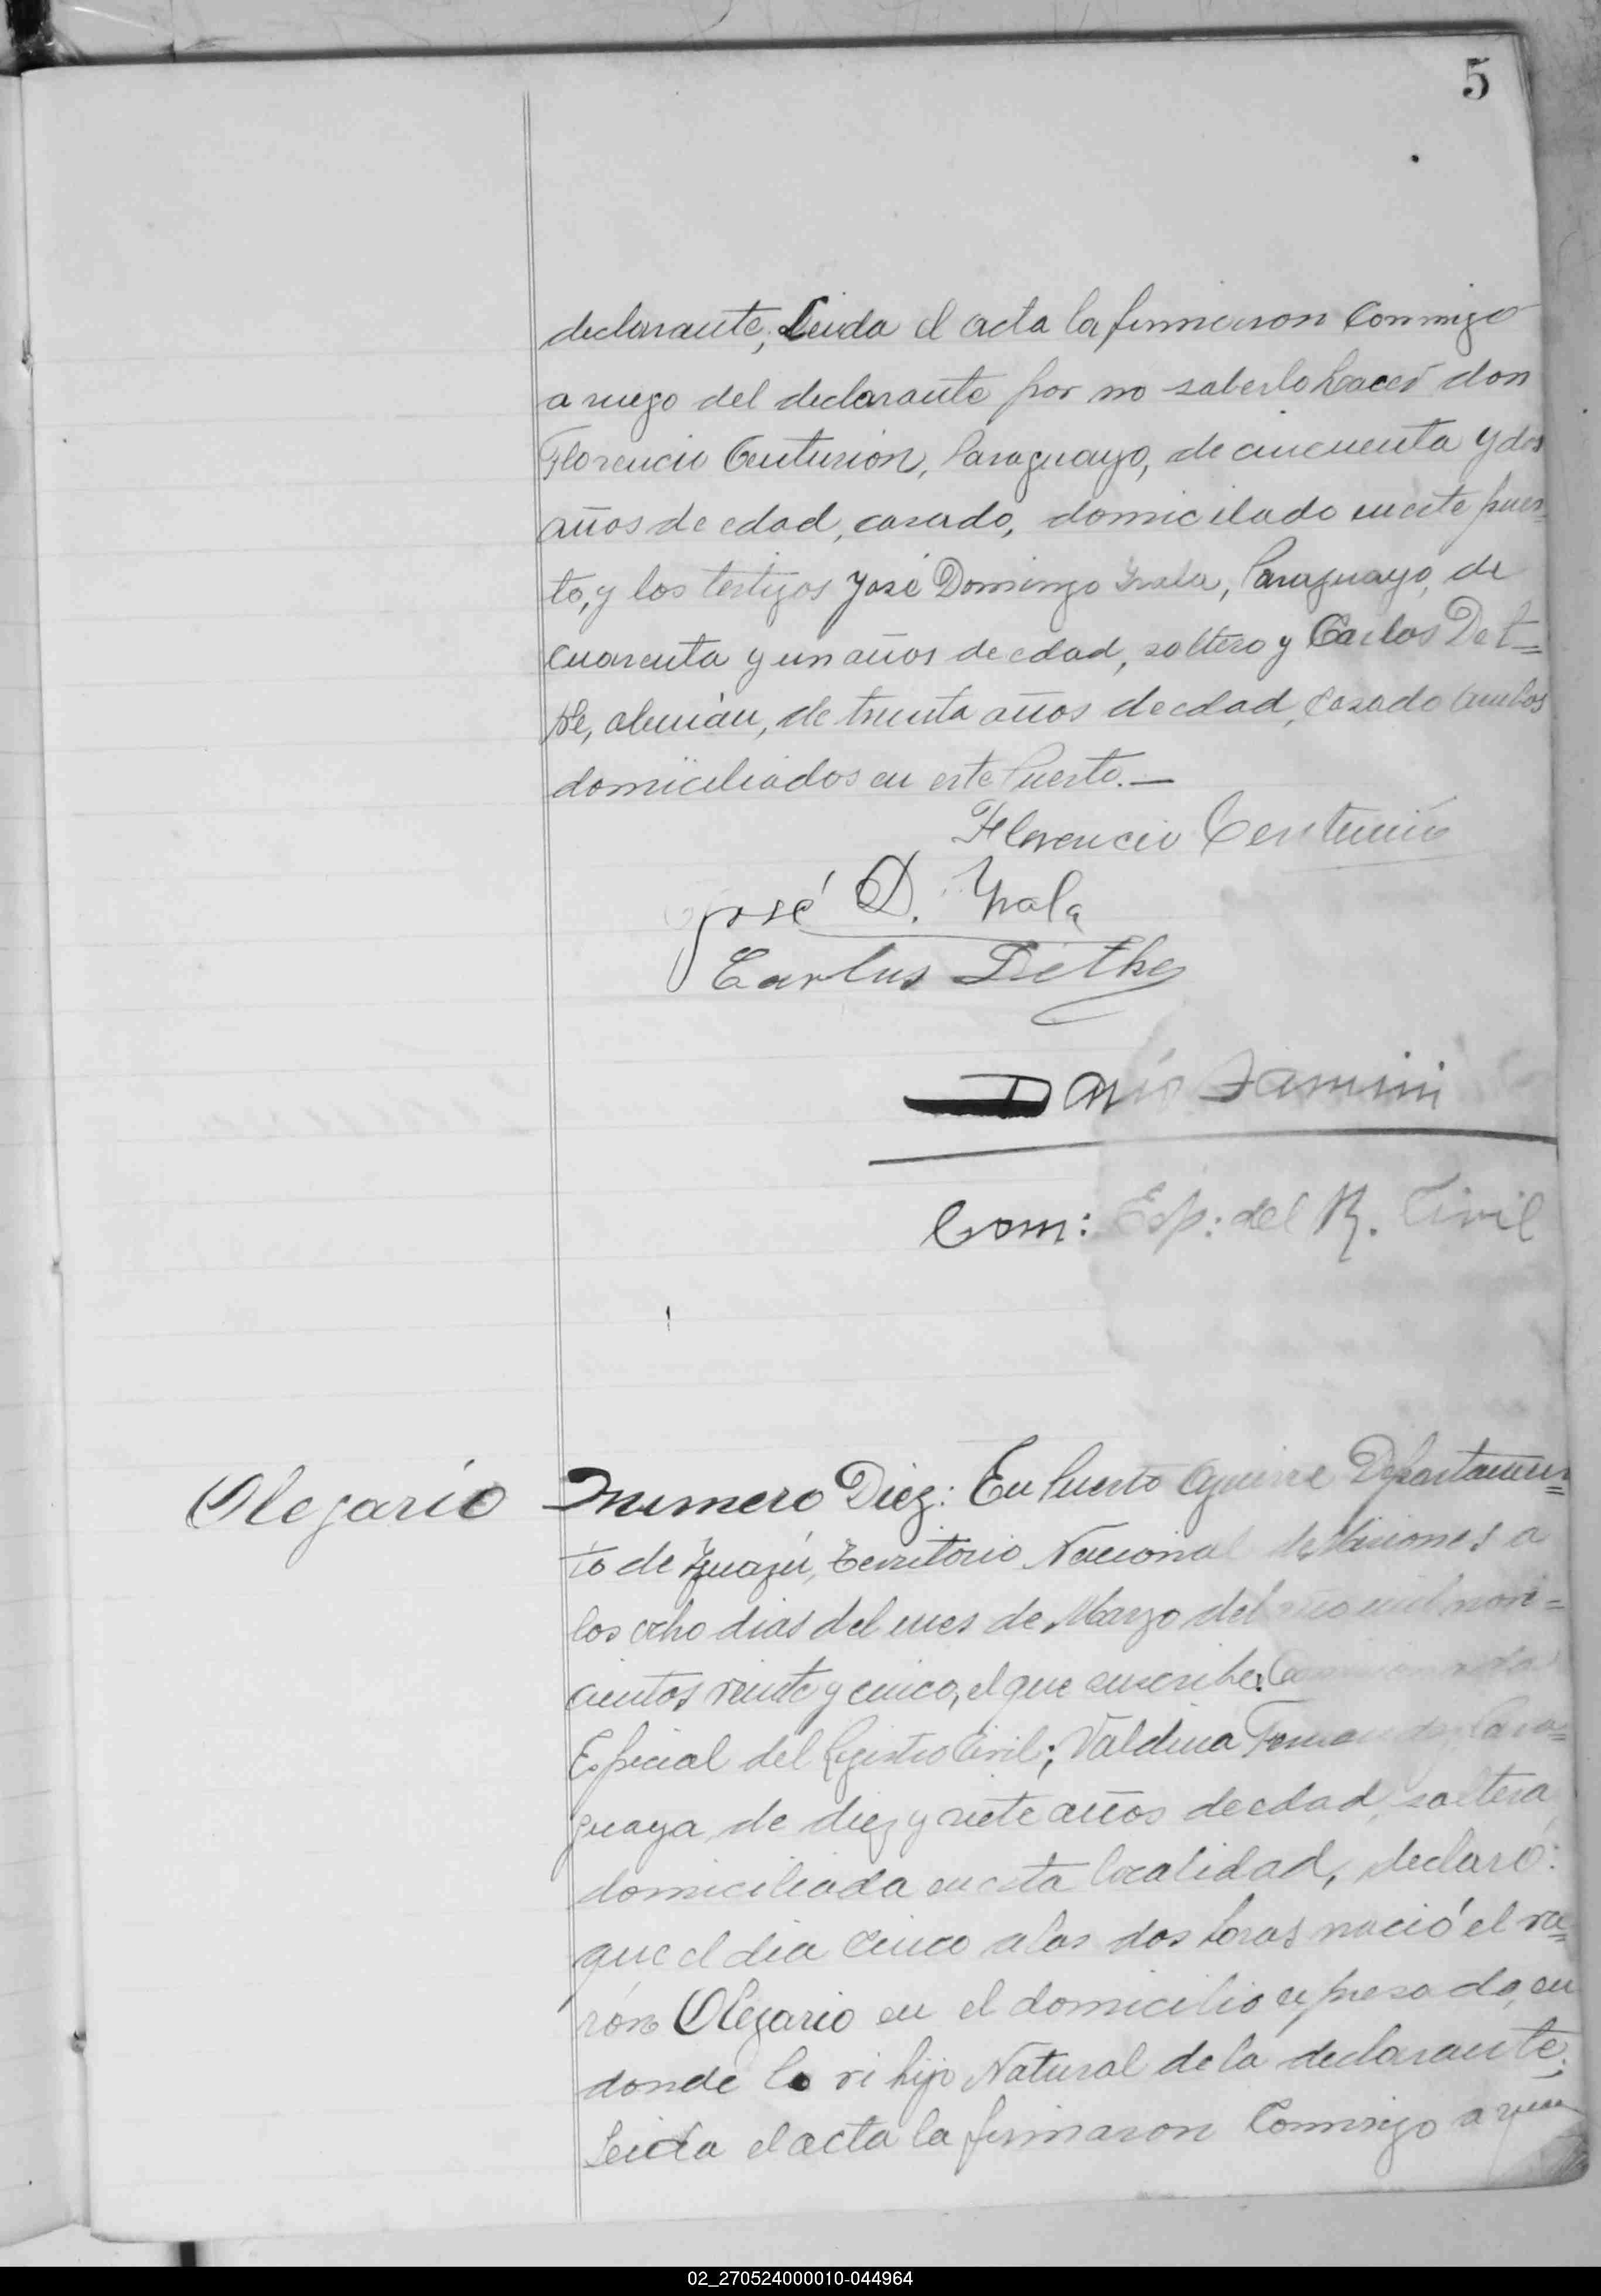 5
declarante; Leida el acta la firmaron Conmigo
a ruego del declarante por no saberlo hacer don
Florencio Centurión, Paraguayo, de cincuenta y dos
años de edad, casado, domicilado en este puer=
to, y los testigos José Domingo Yrala, Paraguayo, de
cuarenta y un años de edad, soltero y Carlos Det=
he, alemán, de treinta años de edad, casado ambos
domiciliados en este Puerto.—
Florencio Centurión
José D. Yrala
Carlos Dethe
Darío
Com: Esp: del R. Civil
Olegario
Numero Diez: En Puerto Aguirre Departamen=
to de Iguazú, Territorio Nacional de Misiones a
los ocho dias del mes de Marzo del año mil nove=
cientos veinte y cinco, el que suscribe: Comisionado
Especial del Registro Civil; Valdina Fernandez, Para=
guaya, de diez y siete años de edad, soltera
domiciliada en esta localidad, declaró:
que el dia cinco a las dos horas nació el va=
rón Olegario en el domicilio expresado, en
donde lo vi hijo Natural de la declarante;
Leida el acta la firmaron Conmigo a
02_270524000010-044964